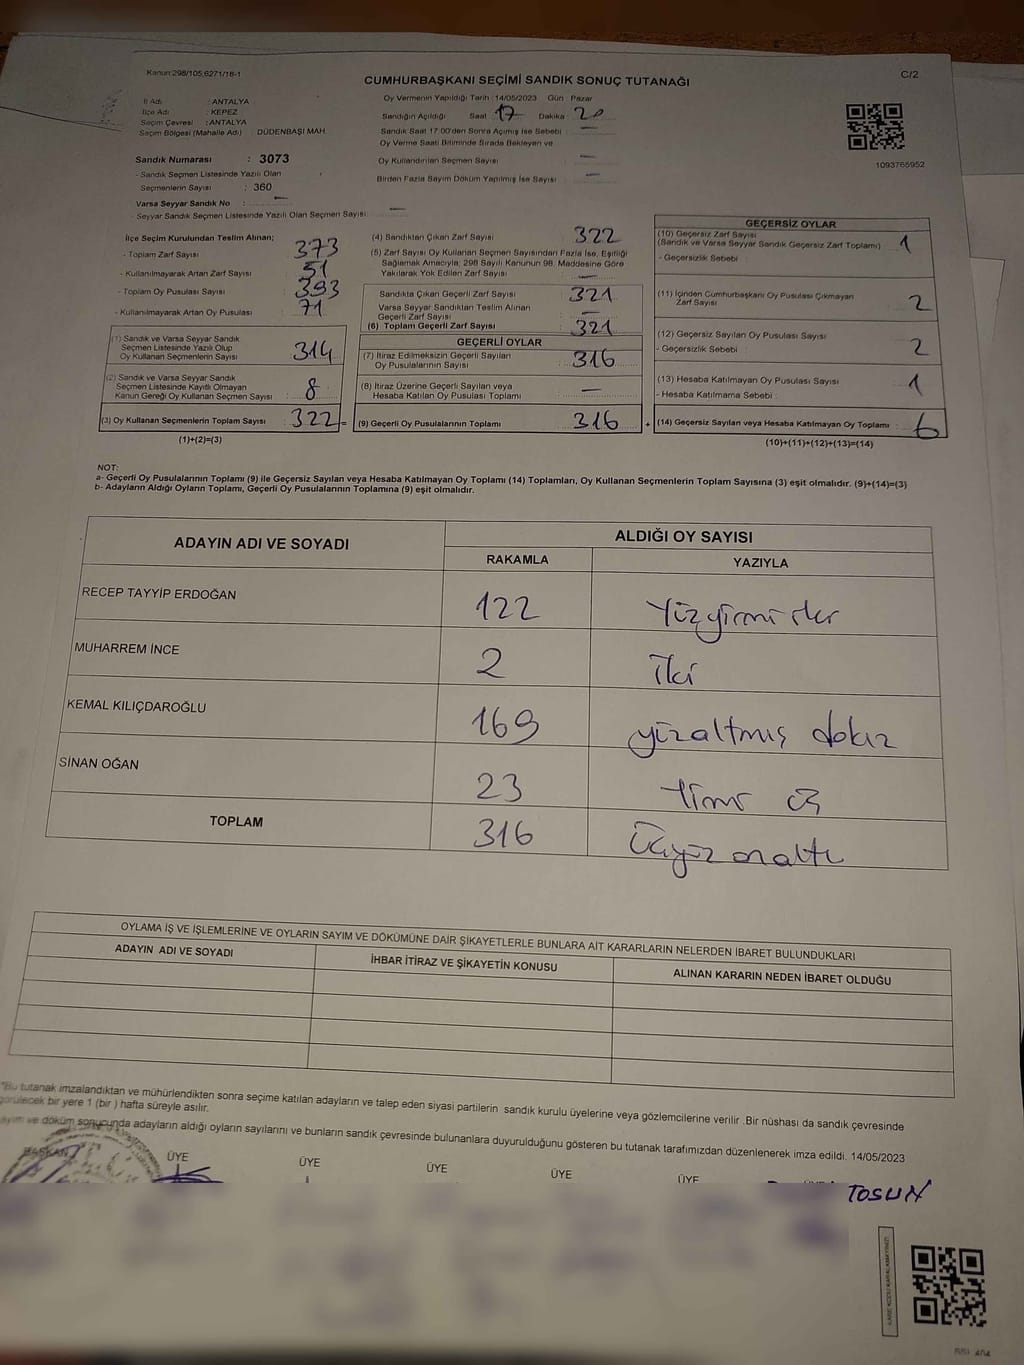 Kanun:298/105,6271/18-1
C/2
CUMHURBAŞKANI SEÇİMİ SANDIK SONUÇ TUTANAĞI
İl Adı : ANTALYA
İlçe Adı : KEPEZ
Seçim Çevresi : ANTALYA
Seçim Bölgesi (Mahalle Adı) DÜDENBAŞI MAH.
Sandık Numarası : 3073
- Sandık Seçmen Listesinde Yazılı Olan
Seçmenlerin Sayısı : 360
Varsa Seyyar Sandık No : —
- Seyyar Sandık Seçmen Listesinde Yazılı Olan Seçmen Sayısı : —
Oy Vermenin Yapıldığı Tarih : 14/05/2023 Gün : Pazar
Sandığın Açıldığı Saat : 17 Dakika : 20
Sandık Saat 17.00'den Sonra Açılmış İse Sebebi : —
Oy Verme Saati Bitiminde Sırada Bekleyen ve
Oy Kullandırılan Seçmen Sayısı : —
Birden Fazla Sayım Döküm Yapılmış İse Sayısı : —
1093765952
İlçe Seçim Kurulundan Teslim Alınan;
- Toplam Zarf Sayısı : 373
- Kullanılmayarak Artan Zarf Sayısı : 51
- Toplam Oy Pusulası Sayısı : 393
- Kullanılmayarak Artan Oy Pusulası : 71
(1) Sandık ve Varsa Seyyar Sandık
Seçmen Listesinde Yazılı Olup
Oy Kullanan Seçmenlerin Sayısı : 314
(2) Sandık ve Varsa Seyyar Sandık
Seçmen Listesinde Kayıtlı Olmayan
Kanun Gereği Oy Kullanan Seçmen Sayısı : 8
(3) Oy Kullanan Seçmenlerin Toplam Sayısı : 322 =
(1)+(2)=(3)
(4) Sandıktan Çıkan Zarf Sayısı : 322
(5) Zarf Sayısı Oy Kullanan Seçmen Sayısından Fazla İse, Eşitliği
Sağlamak Amacıyla; 298 Sayılı Kanunun 98. Maddesine Göre
Yakılarak Yok Edilen Zarf Sayısı : —
Sandıkta Çıkan Geçerli Zarf Sayısı : 321
Varsa Seyyar Sandıktan Teslim Alınan
Geçerli Zarf Sayısı : —
(6) Toplam Geçerli Zarf Sayısı : 321
GEÇERLİ OYLAR
(7) İtiraz Edilmeksizin Geçerli Sayılan
Oy Pusulalarının Sayısı : 316
(8) İtiraz Üzerine Geçerli Sayılan veya
Hesaba Katılan Oy Pusulası Toplamı : —
(9) Geçerli Oy Pusulalarının Toplamı : 316 +
GEÇERSİZ OYLAR
(10) Geçersiz Zarf Sayısı
(Sandık ve Varsa Seyyar Sandık Geçersiz Zarf Toplamı) : 1
- Geçersizlik Sebebi :
(11) İçinden Cumhurbaşkanı Oy Pusulası Çıkmayan
Zarf Sayısı : 2
(12) Geçersiz Sayılan Oy Pusulası Sayısı : 2
- Geçersizlik Sebebi :
(13) Hesaba Katılmayan Oy Pusulası Sayısı : 1
- Hesaba Katılmama Sebebi :
(14) Geçersiz Sayılan veya Hesaba Katılmayan Oy Toplamı : 6
(10)+(11)+(12)+(13)=(14)
NOT:
a- Geçerli Oy Pusulalarının Toplamı (9) ile Geçersiz Sayılan veya Hesaba Katılmayan Oy Toplamı (14) Toplamları, Oy Kullanan Seçmenlerin Toplam Sayısına (3) eşit olmalıdır. (9)+(14)=(3)
b- Adayların Aldığı Oyların Toplamı, Geçerli Oy Pusulalarının Toplamına (9) eşit olmalıdır.
ADAYIN ADI VE SOYADI ALDIĞI OY SAYISI
RAKAMLA YAZIYLA
RECEP TAYYİP ERDOĞAN 122 Yüzyirmi iki
MUHARREM İNCE 2 İki
KEMAL KILIÇDAROĞLU 169 yüzaltmış dokuz
SİNAN OĞAN 23 Yirmi üç
TOPLAM 316 Üçyüz onaltı
OYLAMA İŞ VE İŞLEMLERİNE VE OYLARIN SAYIM VE DÖKÜMÜNE DAİR ŞİKAYETLERLE BUNLARA AİT KARARLARIN NELERDEN İBARET BULUNDUKLARI
ADAYIN ADI VE SOYADI İHBAR İTİRAZ VE ŞİKAYETİN KONUSU ALINAN KARARIN NEDEN İBARET OLDUĞU
"Bu tutanak imzalandıktan ve mühürlendikten sonra seçime katılan adayların ve talep eden siyasi partilerin sandık kurulu üyelerine veya gözlemcilerine verilir .Bir nüshası da sandık çevresinde
görülecek bir yere 1 (bir ) hafta süreyle asılır.
sayım ve döküm sonucunda adayların aldığı oyların sayılarını ve bunların sandık çevresinde bulunanlara duyurulduğunu gösteren bu tutanak tarafımızdan düzenlenerek imza edildi. 14/05/2023
BAŞKAN ÜYE ÜYE ÜYE ÜYE ÜYE
TOSUN